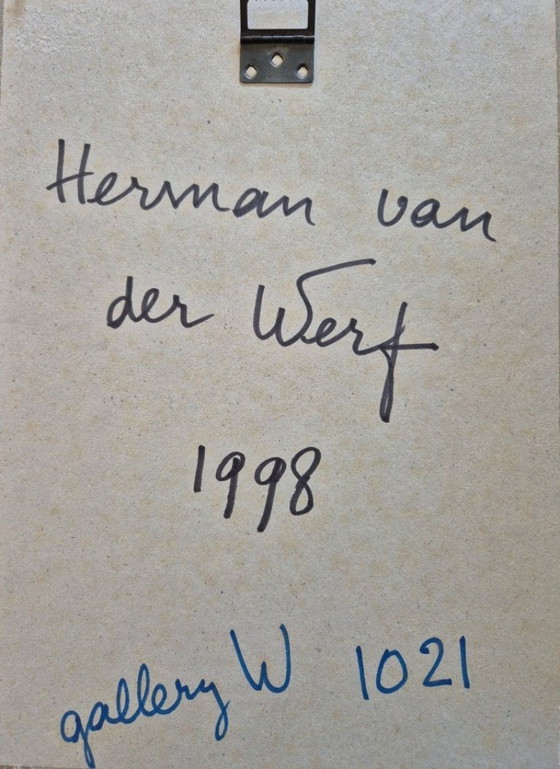 Herman van
der Werf
1998
gallery W 1021